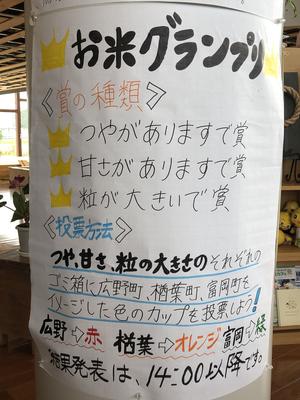 お米グランプリ
〈賞の種類〉
つやがありますで賞
甘さがありますで賞
粒が大きいで賞
〈投票方法〉
つや、甘さ、粒の大きさのそれぞれの
ゴミ箱に広野町、楢葉町、富岡町を
イメージした色のカップを投票しよう!
広野→赤 楢葉→オレンジ 富岡→緑
結果発表は、14:00以降です。